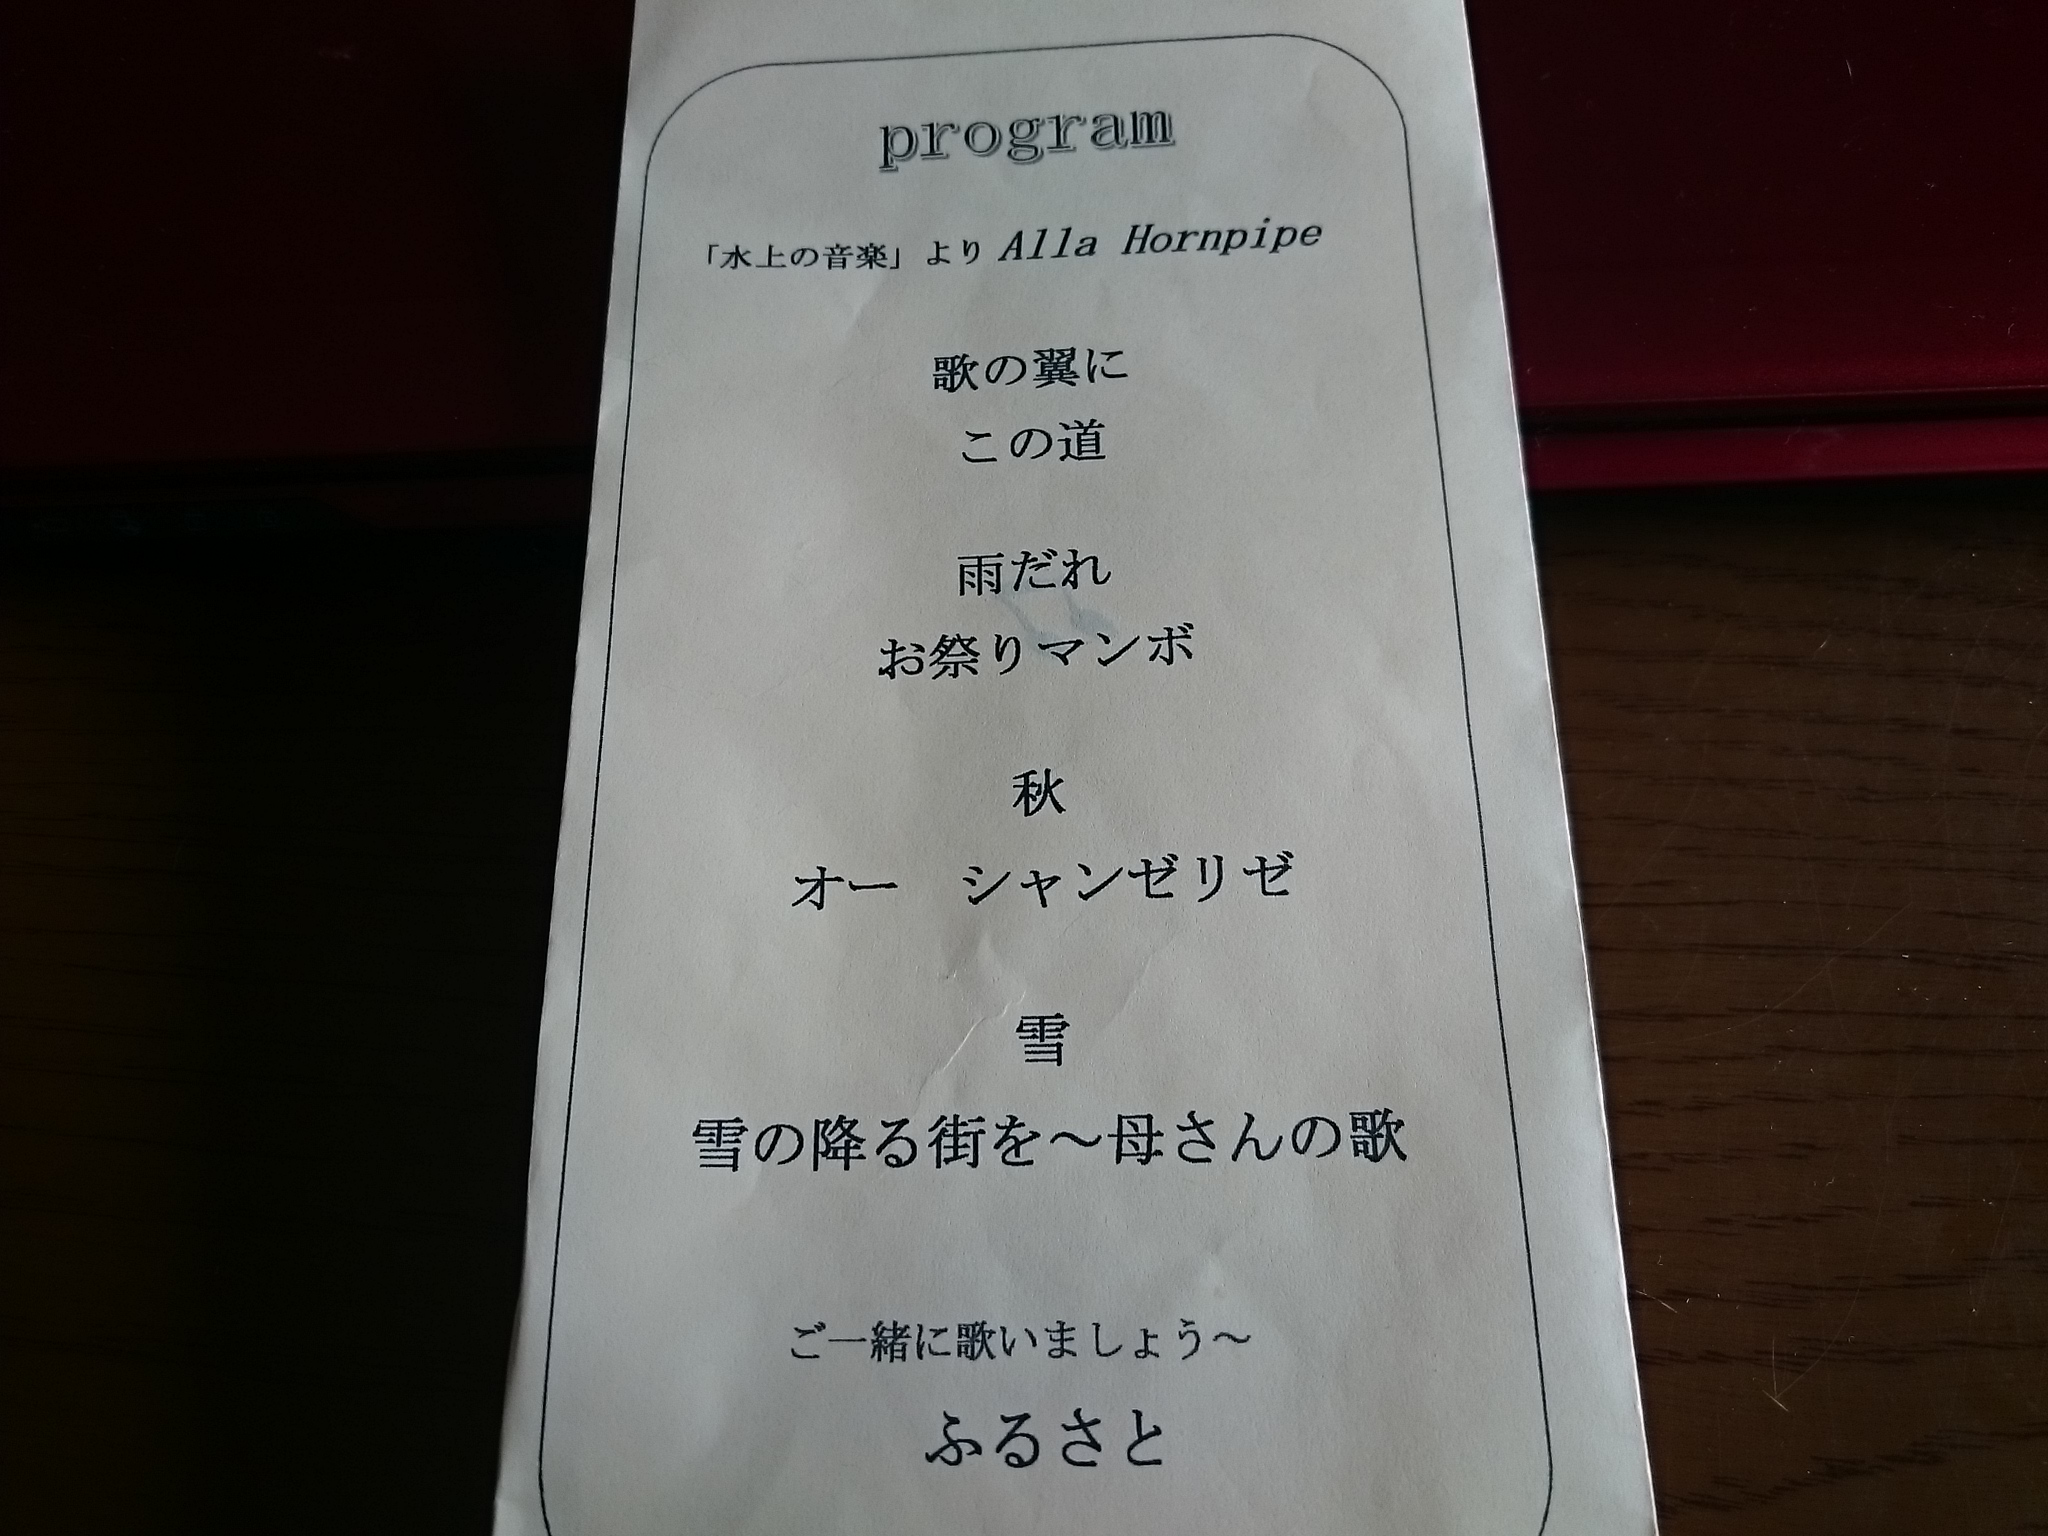 program
「水上の音楽」より Alla Hornpipe
歌の翼に
この道
雨だれ
お祭りマンボ
秋
オー　シャンゼリゼ
雪
雪の降る街を～母さんの歌
ご一緒に歌いましょう～
ふるさと